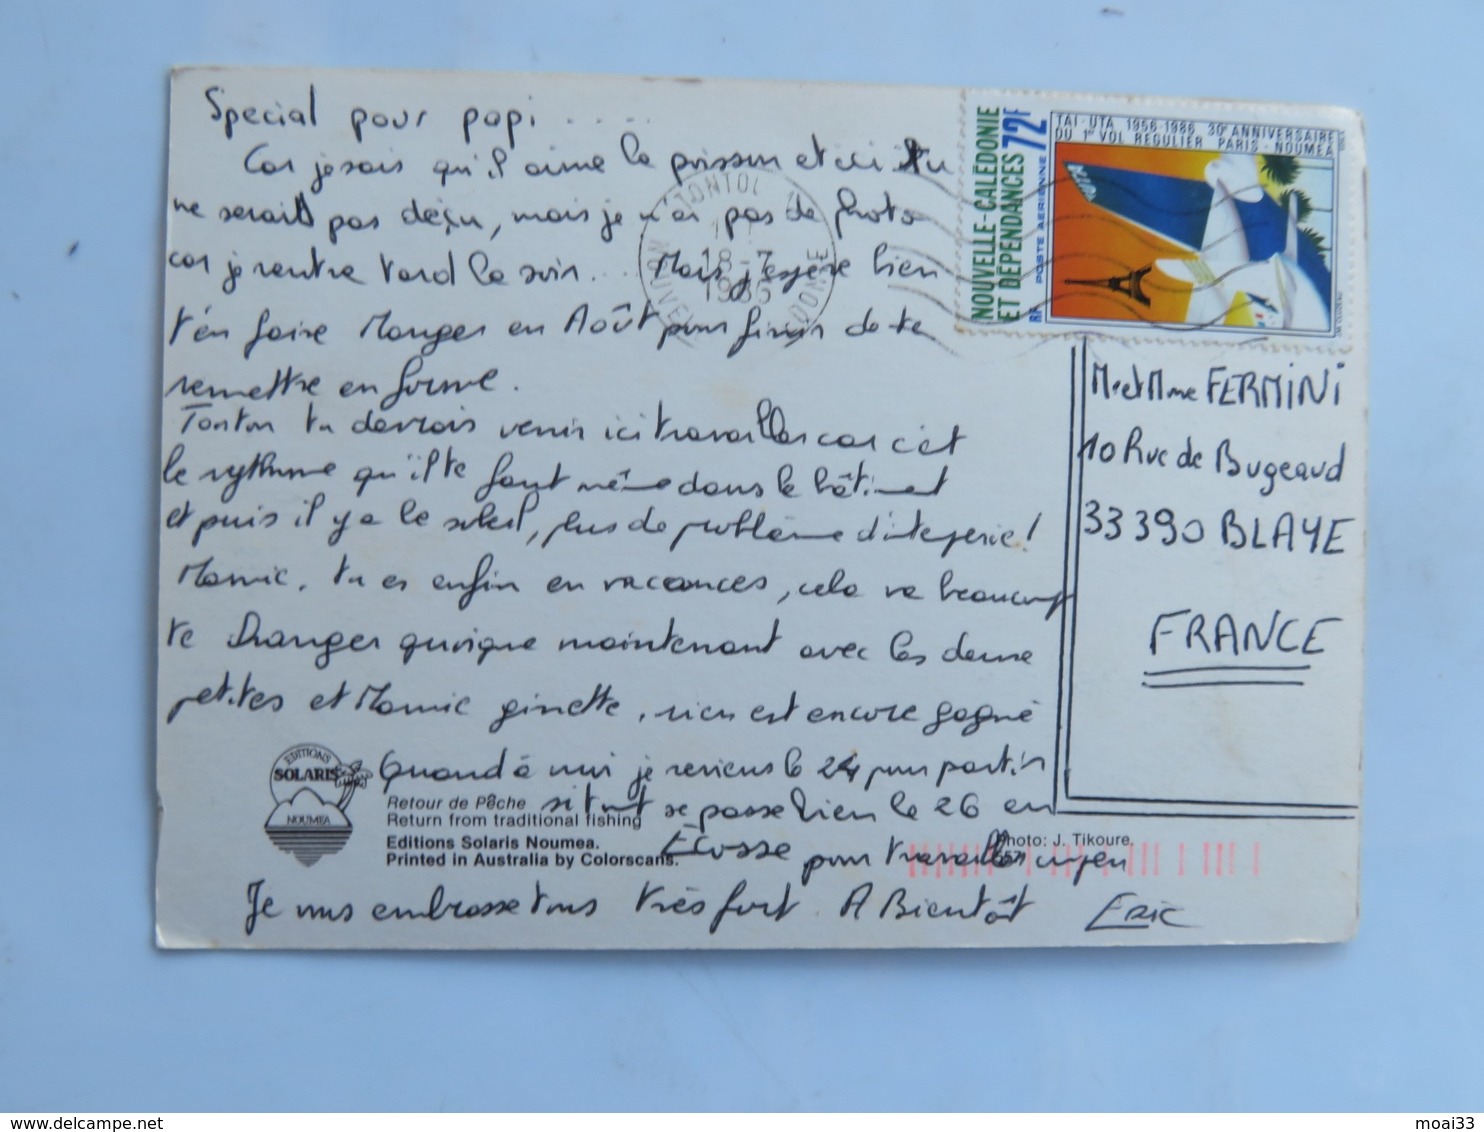 Special pour papi .....
Car je sais qu'il aime le poisson et ici tu
ne serais pas déçu, mais je n'ai pas de photo
car je rentre tard le soir... Mais j'espère bien
t'en faire Manger en Août pour finir de te
remettre en forme.
Tonton tu devrais venir ici travailler car c'est
le rythme qu'il te faut même dans le bâtiment
et puis il y a le soleil, plus de problème d'intemperie!
Mamie, tu es enfin en vacances, cela va beaucoup
te changer quoique maintenant avec les deux
petites et Mamie ginette, rien est encore gagné
Quand à moi je reviens le 24 pour partir
si tout se passe bien le 26 en
Ecosse pour travailler un peu
Je vous embrasse tous très fort A Bientôt Eric
NOUVELLE-CALÉDONIE
ET DÉPENDANCES 72F
RF POSTE AERIENNE
TAI-UTA 1956-1986 30e ANNIVERSAIRE
DU 1er VOL REGULIER PARIS-NOUMEA
TONTOU
18-7
1986
NOUVELLE CALEDONIE
Mr et Mme FERMINI
10 Rue de Bugeaud
33390 BLAYE
FRANCE
EDITIONS
SOLARIS
NOUMEA
Retour de Pêche
Return from traditional fishing
Editions Solaris Noumea.
Printed in Australia by Colorscans.
Photo: J. Tikoure.
moai33